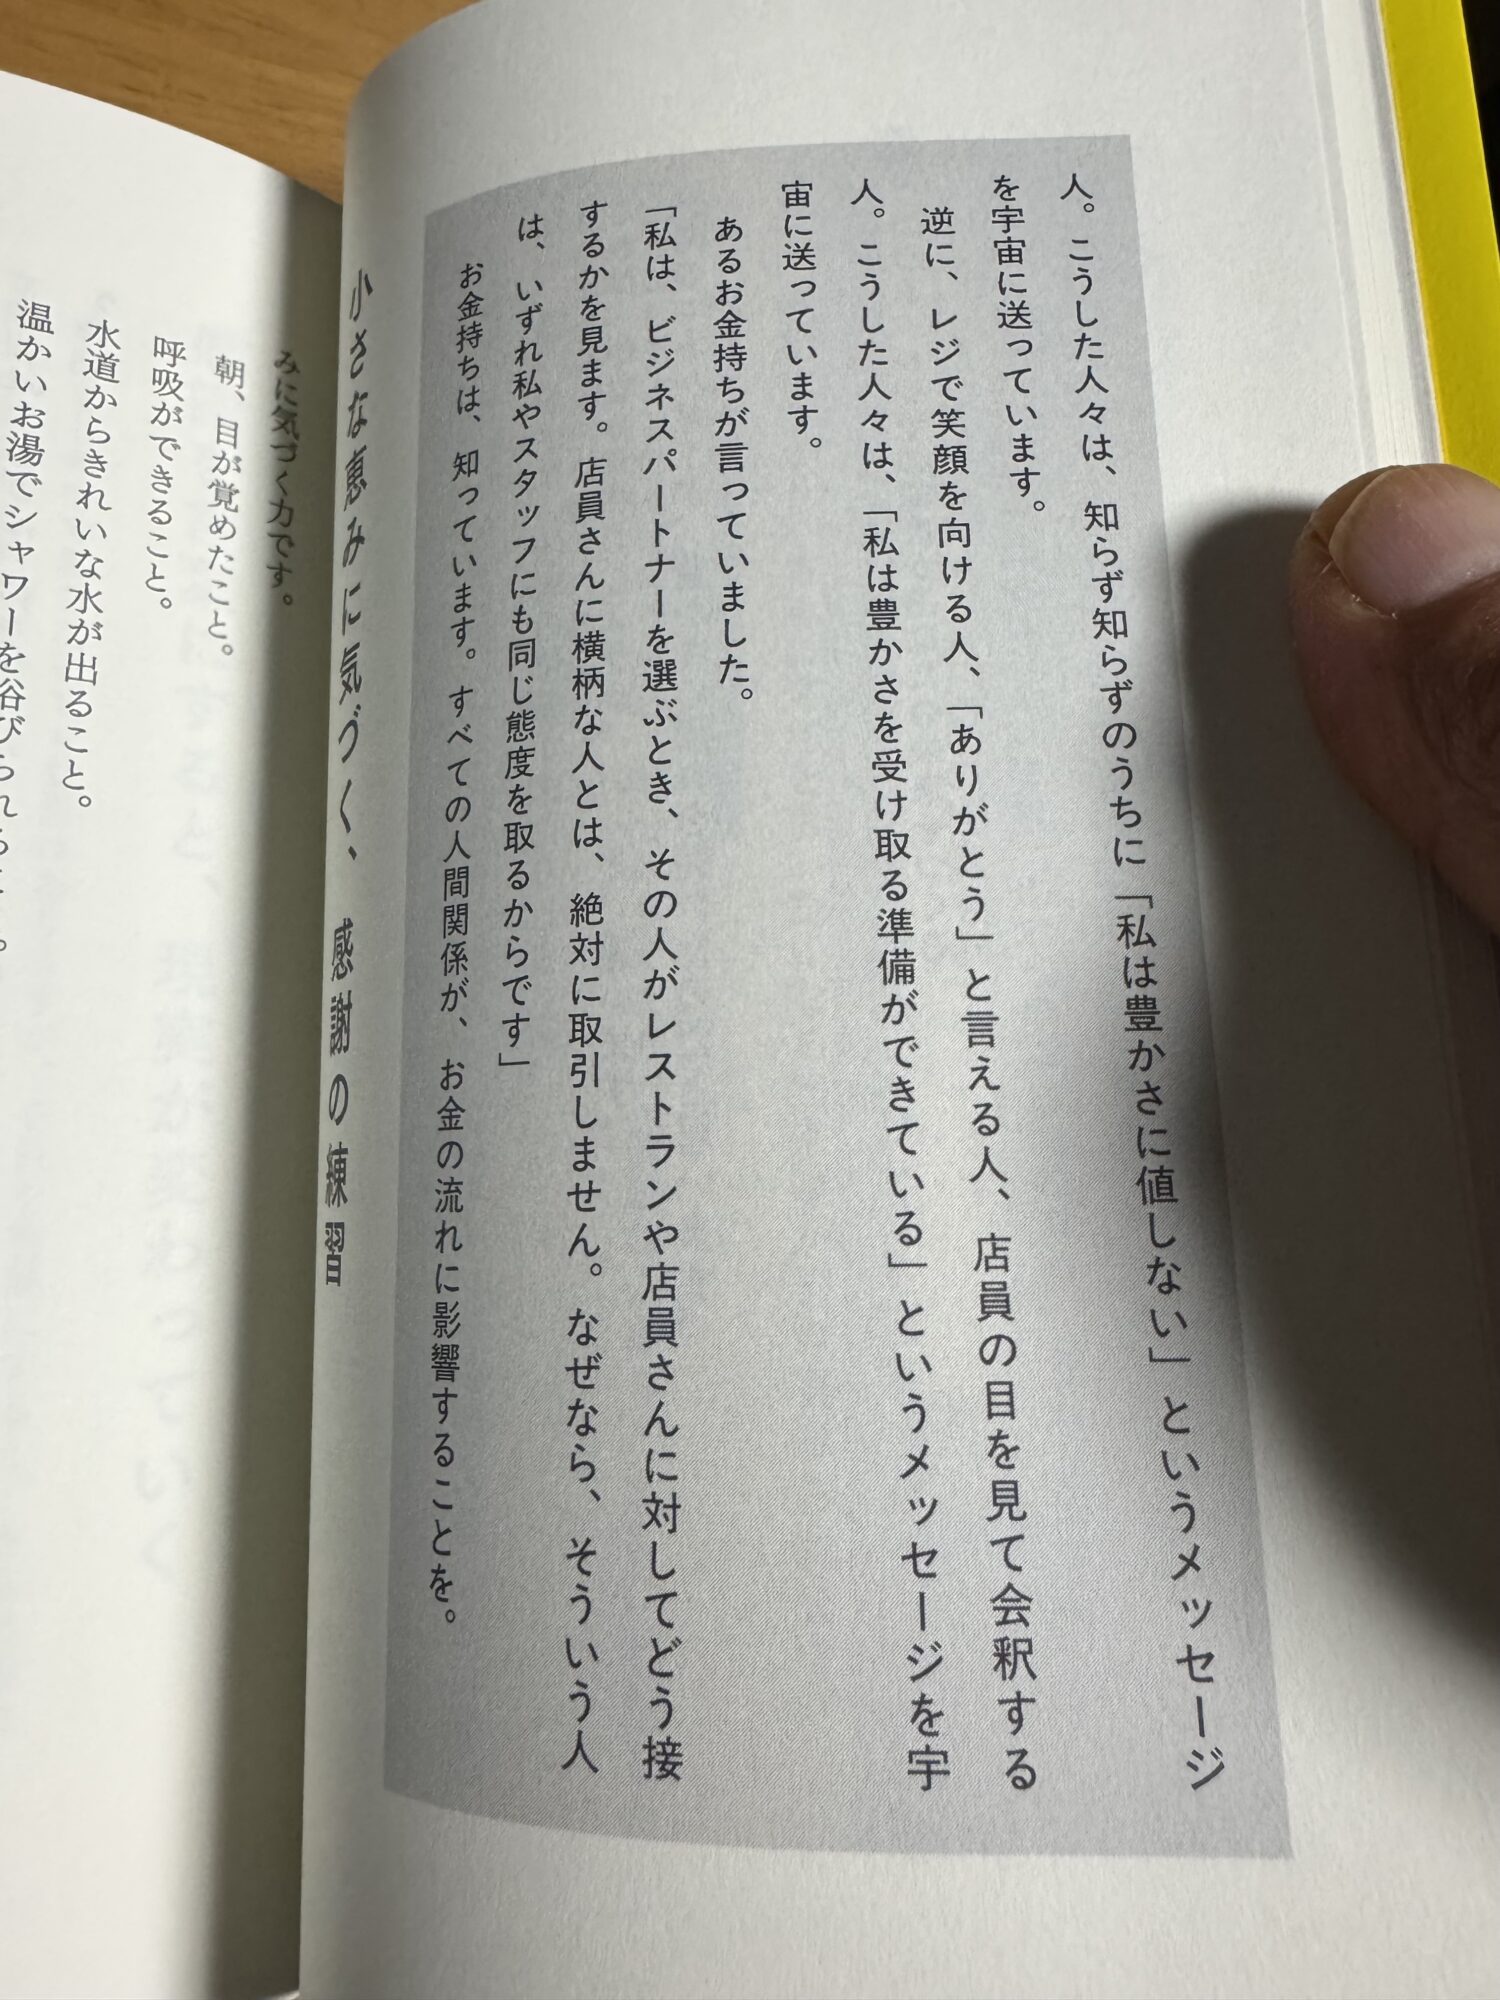 人。こうした人々は、知らず知らずのうちに「私は豊かさに値しない」というメッセージ
を宇宙に送っています。
逆に、レジで笑顔を向ける人、「ありがとう」と言える人、店員の目を見て会釈する
人。こうした人々は、「私は豊かさを受け取る準備ができている」というメッセージを宇
宙に送っています。
あるお金持ちが言っていました。
「私は、ビジネスパートナーを選ぶとき、その人がレストランや店員さんに対してどう接
するかを見ます。店員さんに横柄な人とは、絶対に取引しません。なぜなら、そういう人
は、いずれ私やスタッフにも同じ態度を取るからです」
お金持ちは、知っています。すべての人間関係が、お金の流れに影響することを。
小さな恵みに気づく、感謝の練習
みに気づく力です。
朝、目が覚めたこと。
呼吸ができること。
水道からきれいな水が出ること。
温かいお湯でシャワーを浴びられること。